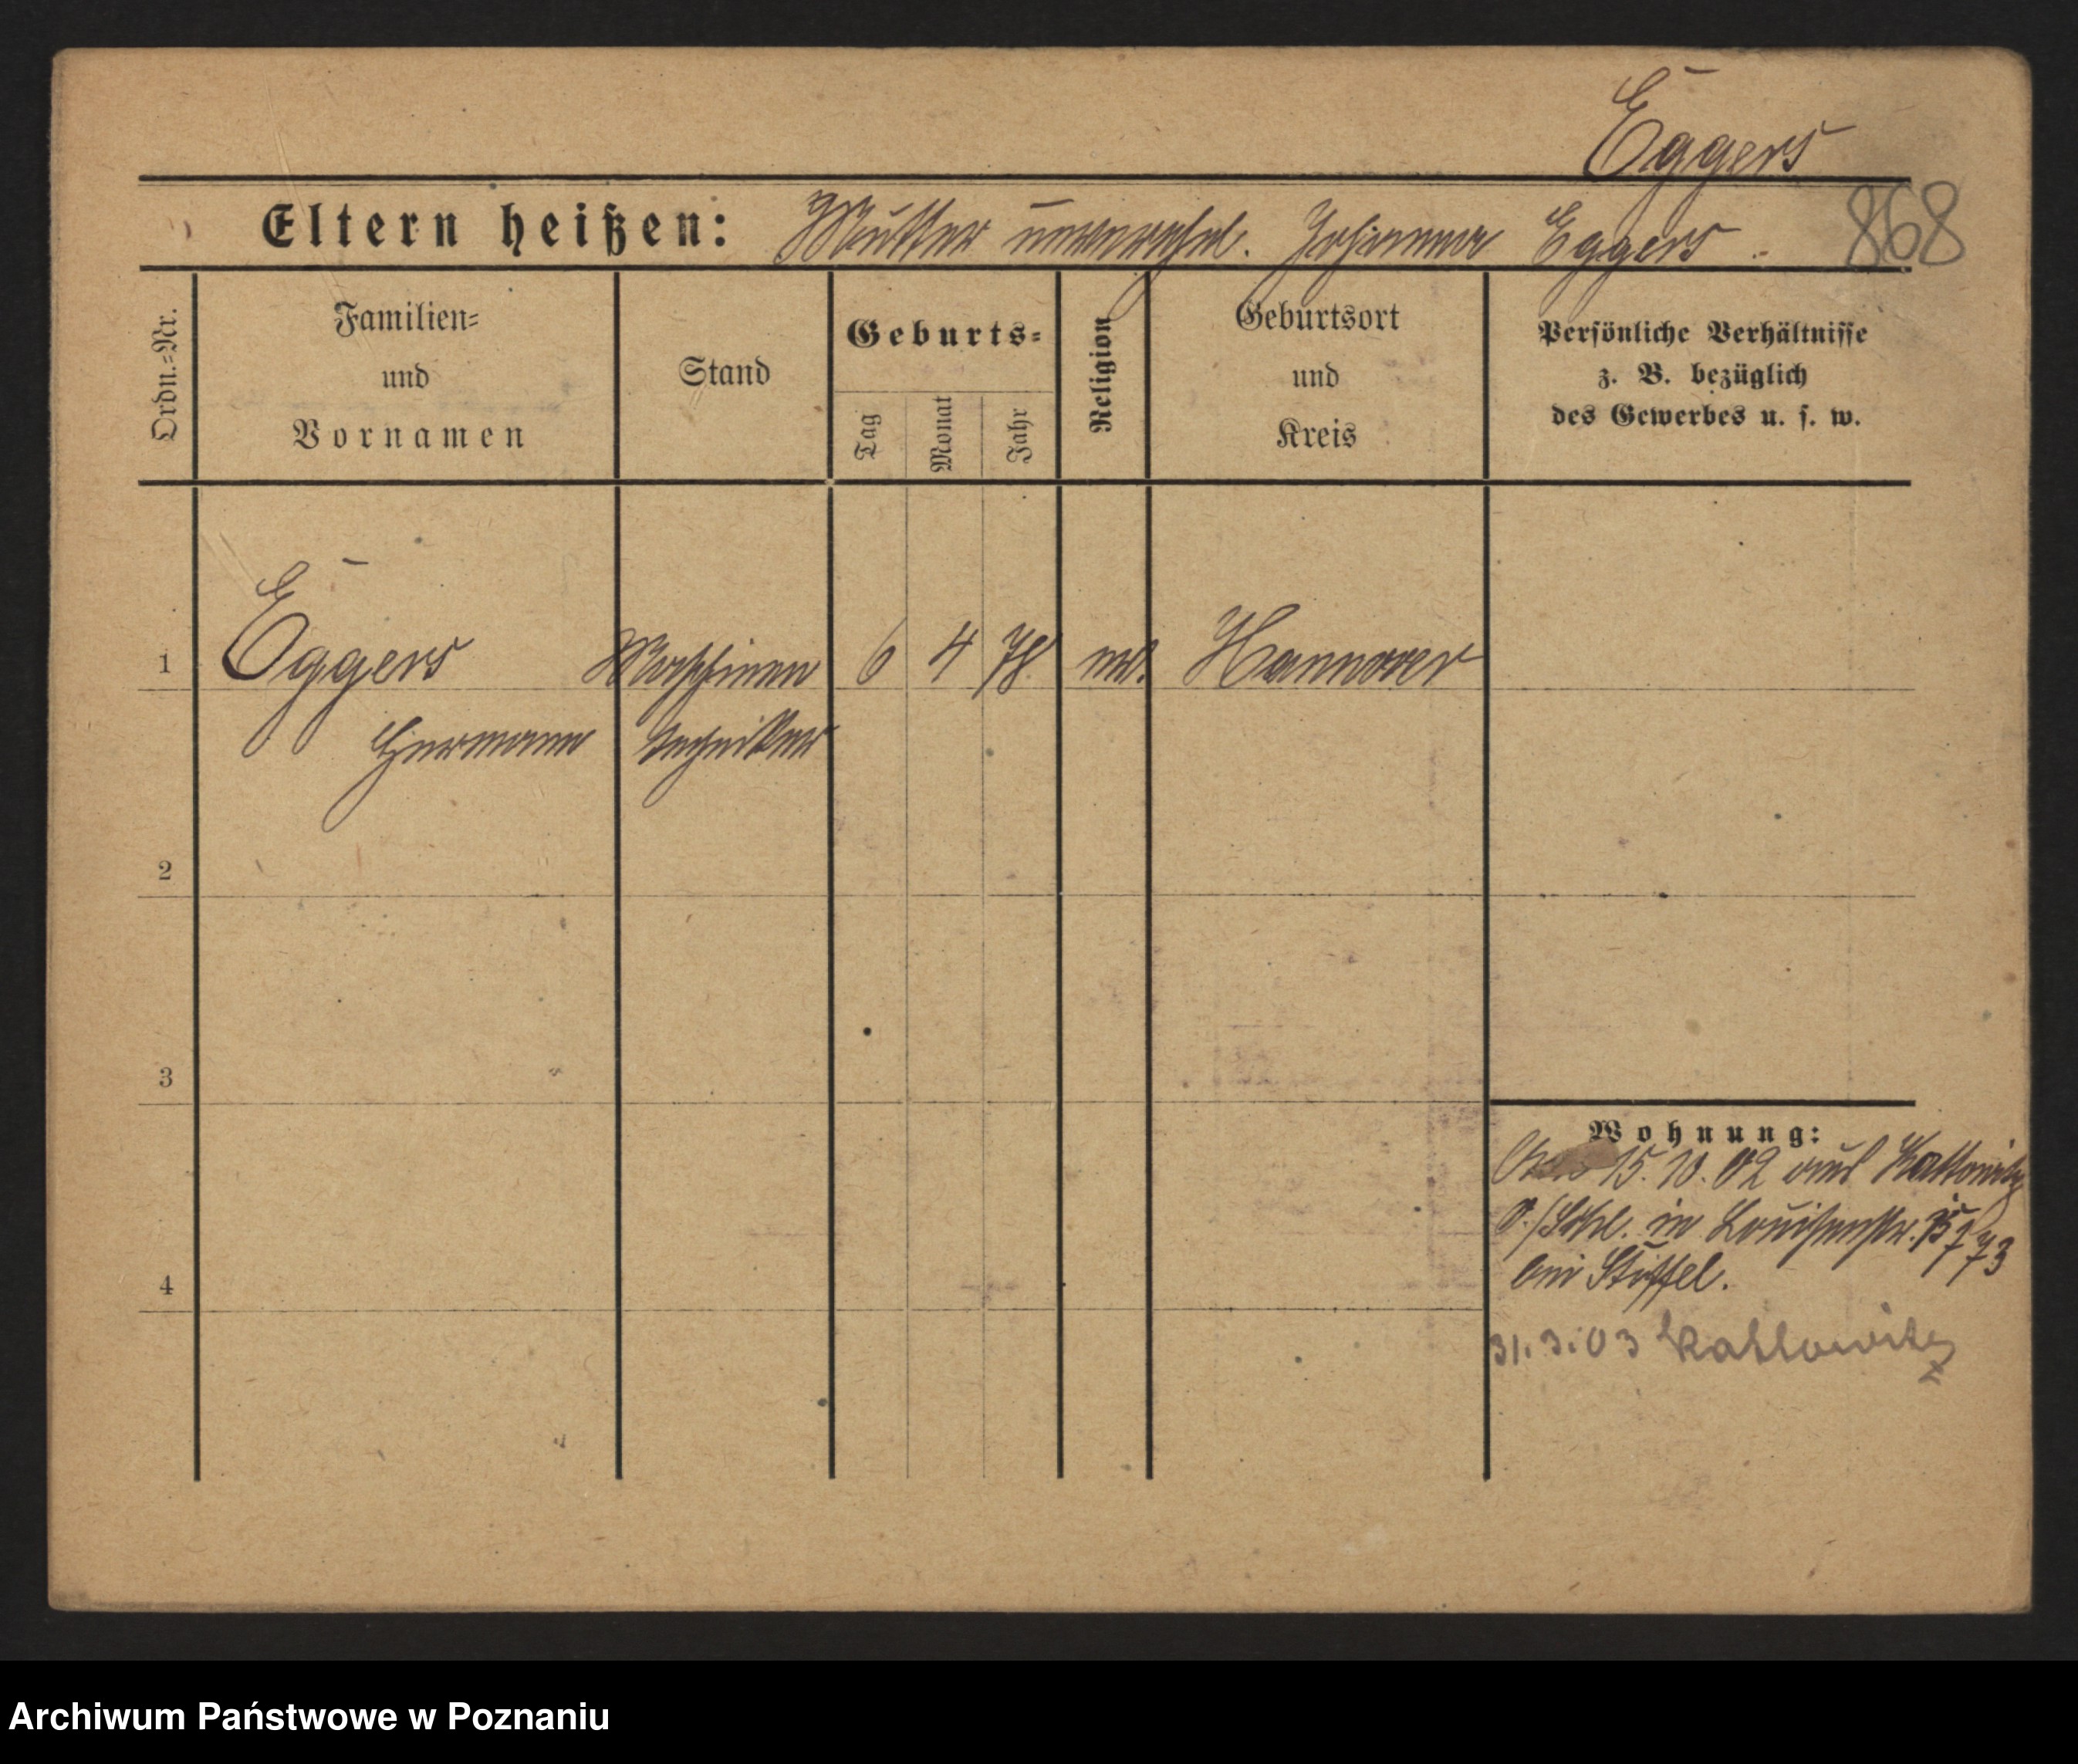 Eggers
868
Eltern heißen: Mutter unverehel. Johanna Eggers.
Ordn.-Nr.
Familien-
und
Vornamen
Stand
Geburts-
Tag
Monat
Jahr
Religion
Geburtsort
und
Kreis
Persönliche Verhältnisse
z. B. bezüglich
des Gewerbes u. s. w.
1 Eggers Maschinen 6 4 78 Hannover
Hermann techniker
2
3
4
Wohnung:
15.10.02 aus Kattowitz
O./Schl. in Louisenstr.
bei Stüffel.
31.3.03 Kattowitz
Archiwum Państwowe w Poznaniu